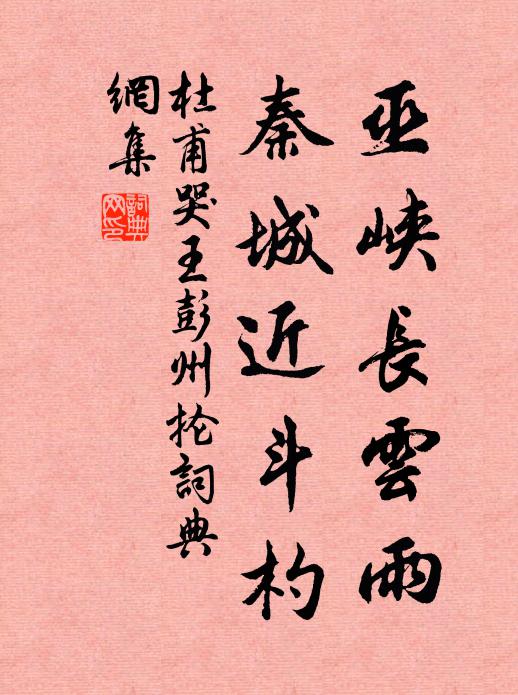 巫峽長雲雨
秦城近斗杓
杜甫哭王彭州抡詞典
網集
詞典
网印